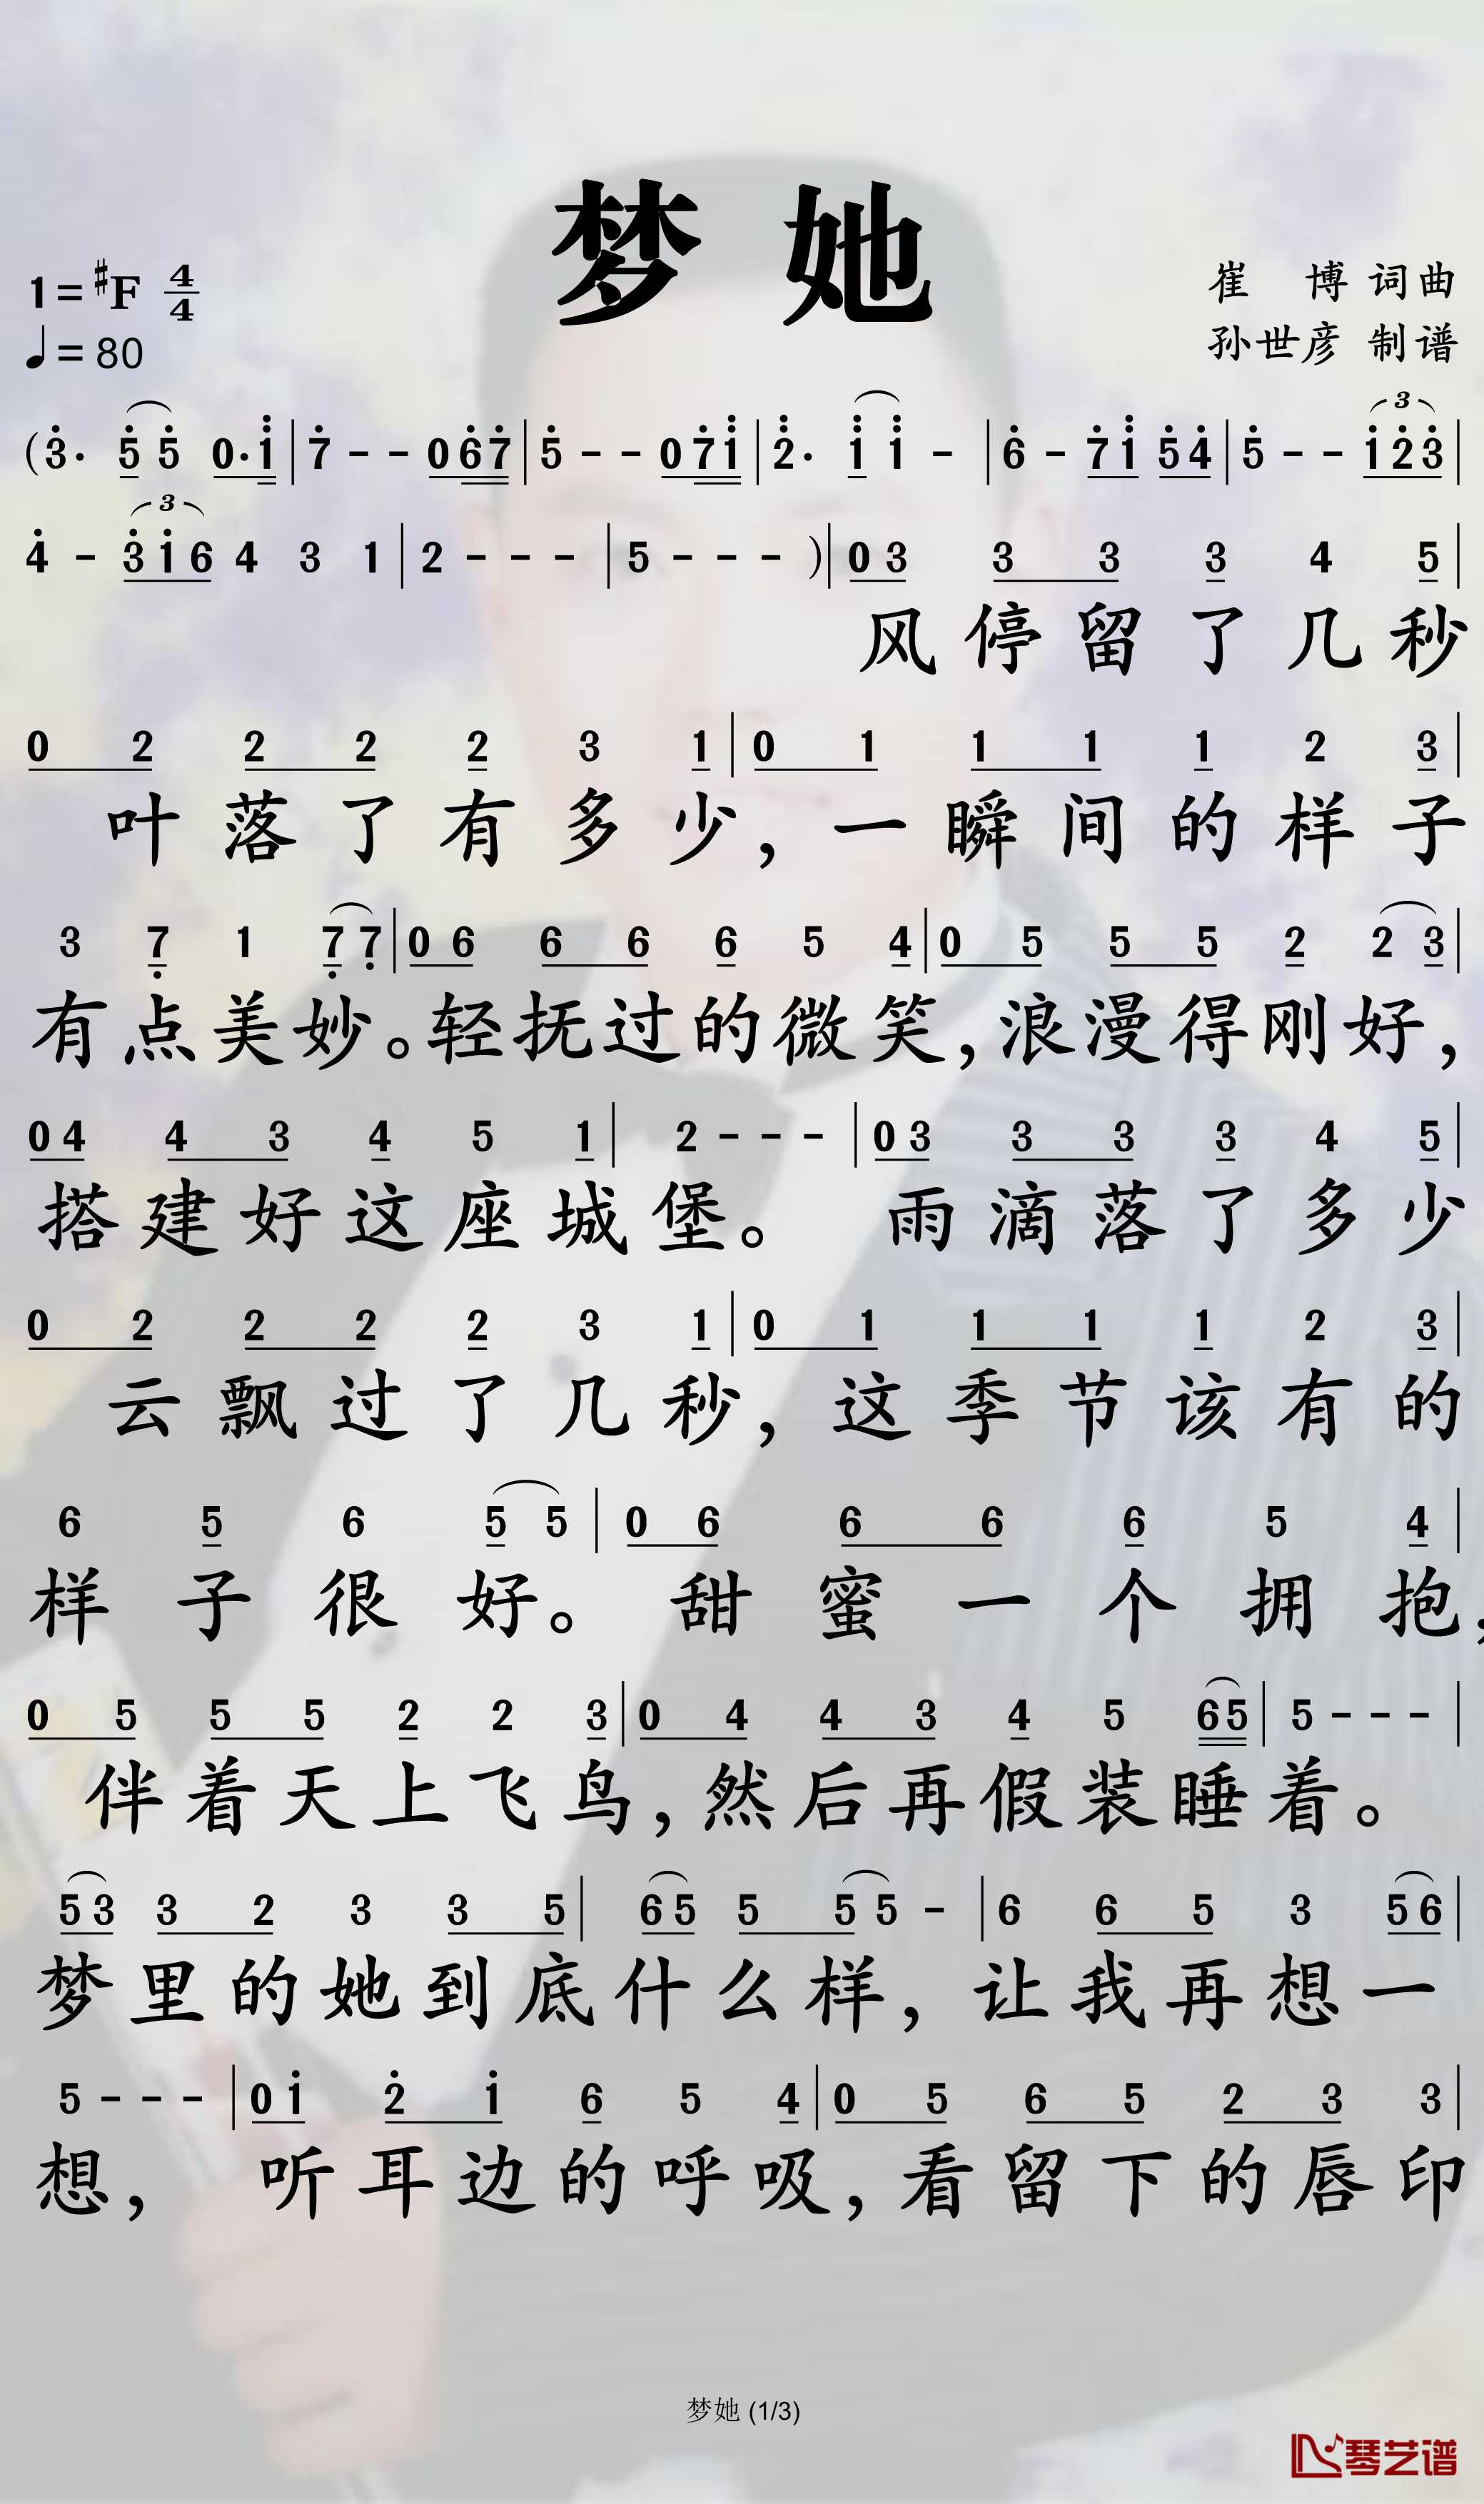 梦她
1=#F 4/4
崔 博 词曲
♩=80
孙世彦 制谱
(3· 5 5 0·1 | 7 - - 0 6 7 | 5 - - 0 7 1 | 2· 1 1 - | 6 - 7 1 5 4 | 5 - - 1 2 3 |
4 - 3 1 6 4 3 1 | 2 - - - | 5 - - - ) | 0 3 3 3 3 4 5 |
风停留了几秒
0 2 2 2 2 3 1 | 0 1 1 1 1 2 3 |
叶落了有多少，一瞬间的样子
3 7 1 7 7 | 0 6 6 6 6 5 4 | 0 5 5 5 2 2 3 |
有点美妙。轻抚过的微笑，浪漫得刚好，
0 4 4 3 4 5 1 | 2 - - - | 0 3 3 3 3 4 5 |
搭建好这座城堡。 雨滴落了多少
0 2 2 2 2 3 1 | 0 1 1 1 1 2 3 |
云飘过了几秒，这季节该有的
6 5 6 5 5 | 0 6 6 6 6 5 4 |
样子很好。 甜蜜一个拥抱，
0 5 5 5 2 2 3 | 0 4 4 3 4 5 6 5 | 5 - - - |
伴着天上飞鸟，然后再假装睡着。
5 3 3 2 3 3 5 | 6 5 5 5 5 - | 6 6 5 3 5 6 |
梦里的她到底什么样，让我再想一
5 - - - | 0 1 2 1 6 5 4 | 0 5 6 5 2 3 3 |
想， 听耳边的呼吸，看留下的唇印
梦她 (1/3)
琴艺谱